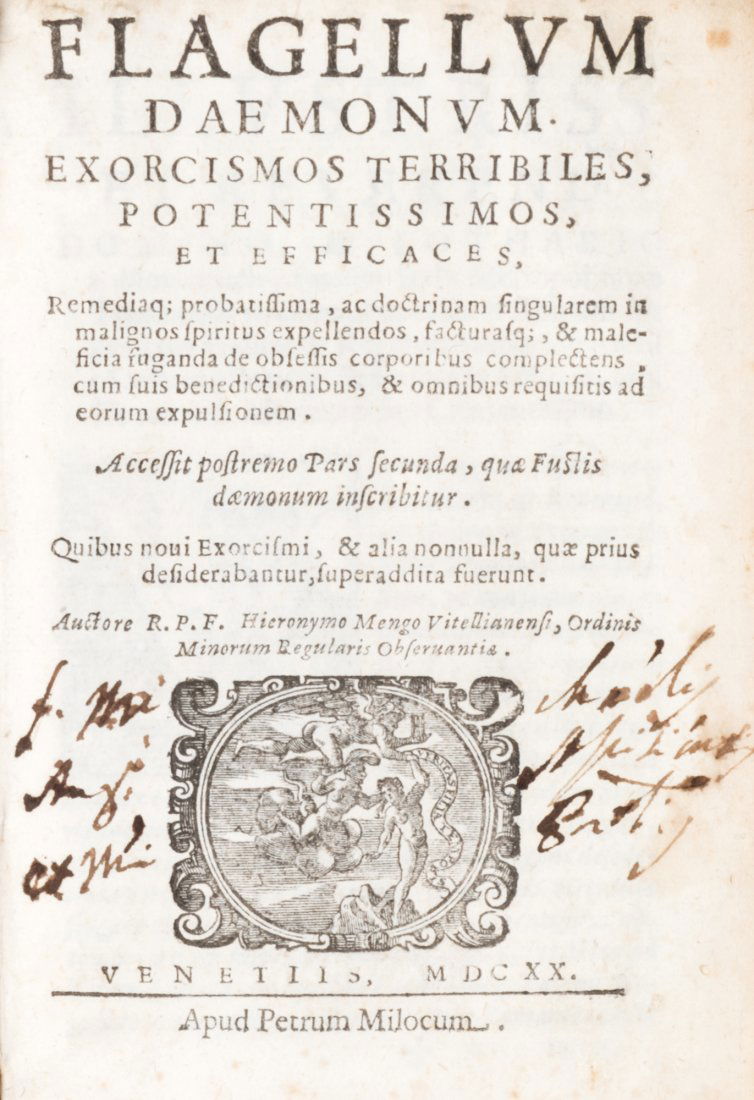 FLAGELLVM
DAEMONVM.
EXORCISMOS TERRIBILES,
POTENTISSIMOS,
ET EFFICACES,
Remediaq; probatiſſima, ac doctrinam ſingularem in
malignos ſpiritus expellendos, facturaſq;, & male-
ficia fuganda de obſeſſis corporibus complectens,
cum ſuis benedictionibus, & omnibus requiſitis ad
eorum expulſionem.
Acceſſit poſtremo Pars ſecunda, quæ Fuſtis
dæmonum inſcribitur.
Quibus noui Exorciſmi, & alia nonnulla, quæ prius
deſiderabantur, ſuperaddita fuerunt.
Auctore R. P. F. Hieronymo Mengo Vitellianenſi, Ordinis
Minorum Regularis Obſeruantiæ.
et
VENETIIS, MDCXX.
Apud Petrum Milocum.